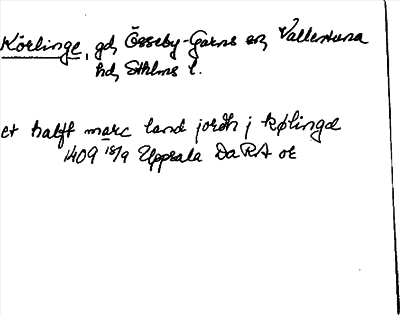 Körlinge, gd, Össeby-Garns sn, Vallentuna
hd, Sthlms l.
et halft marc land jordh j kølinge
1409 18/9 Uppsala DaRA or